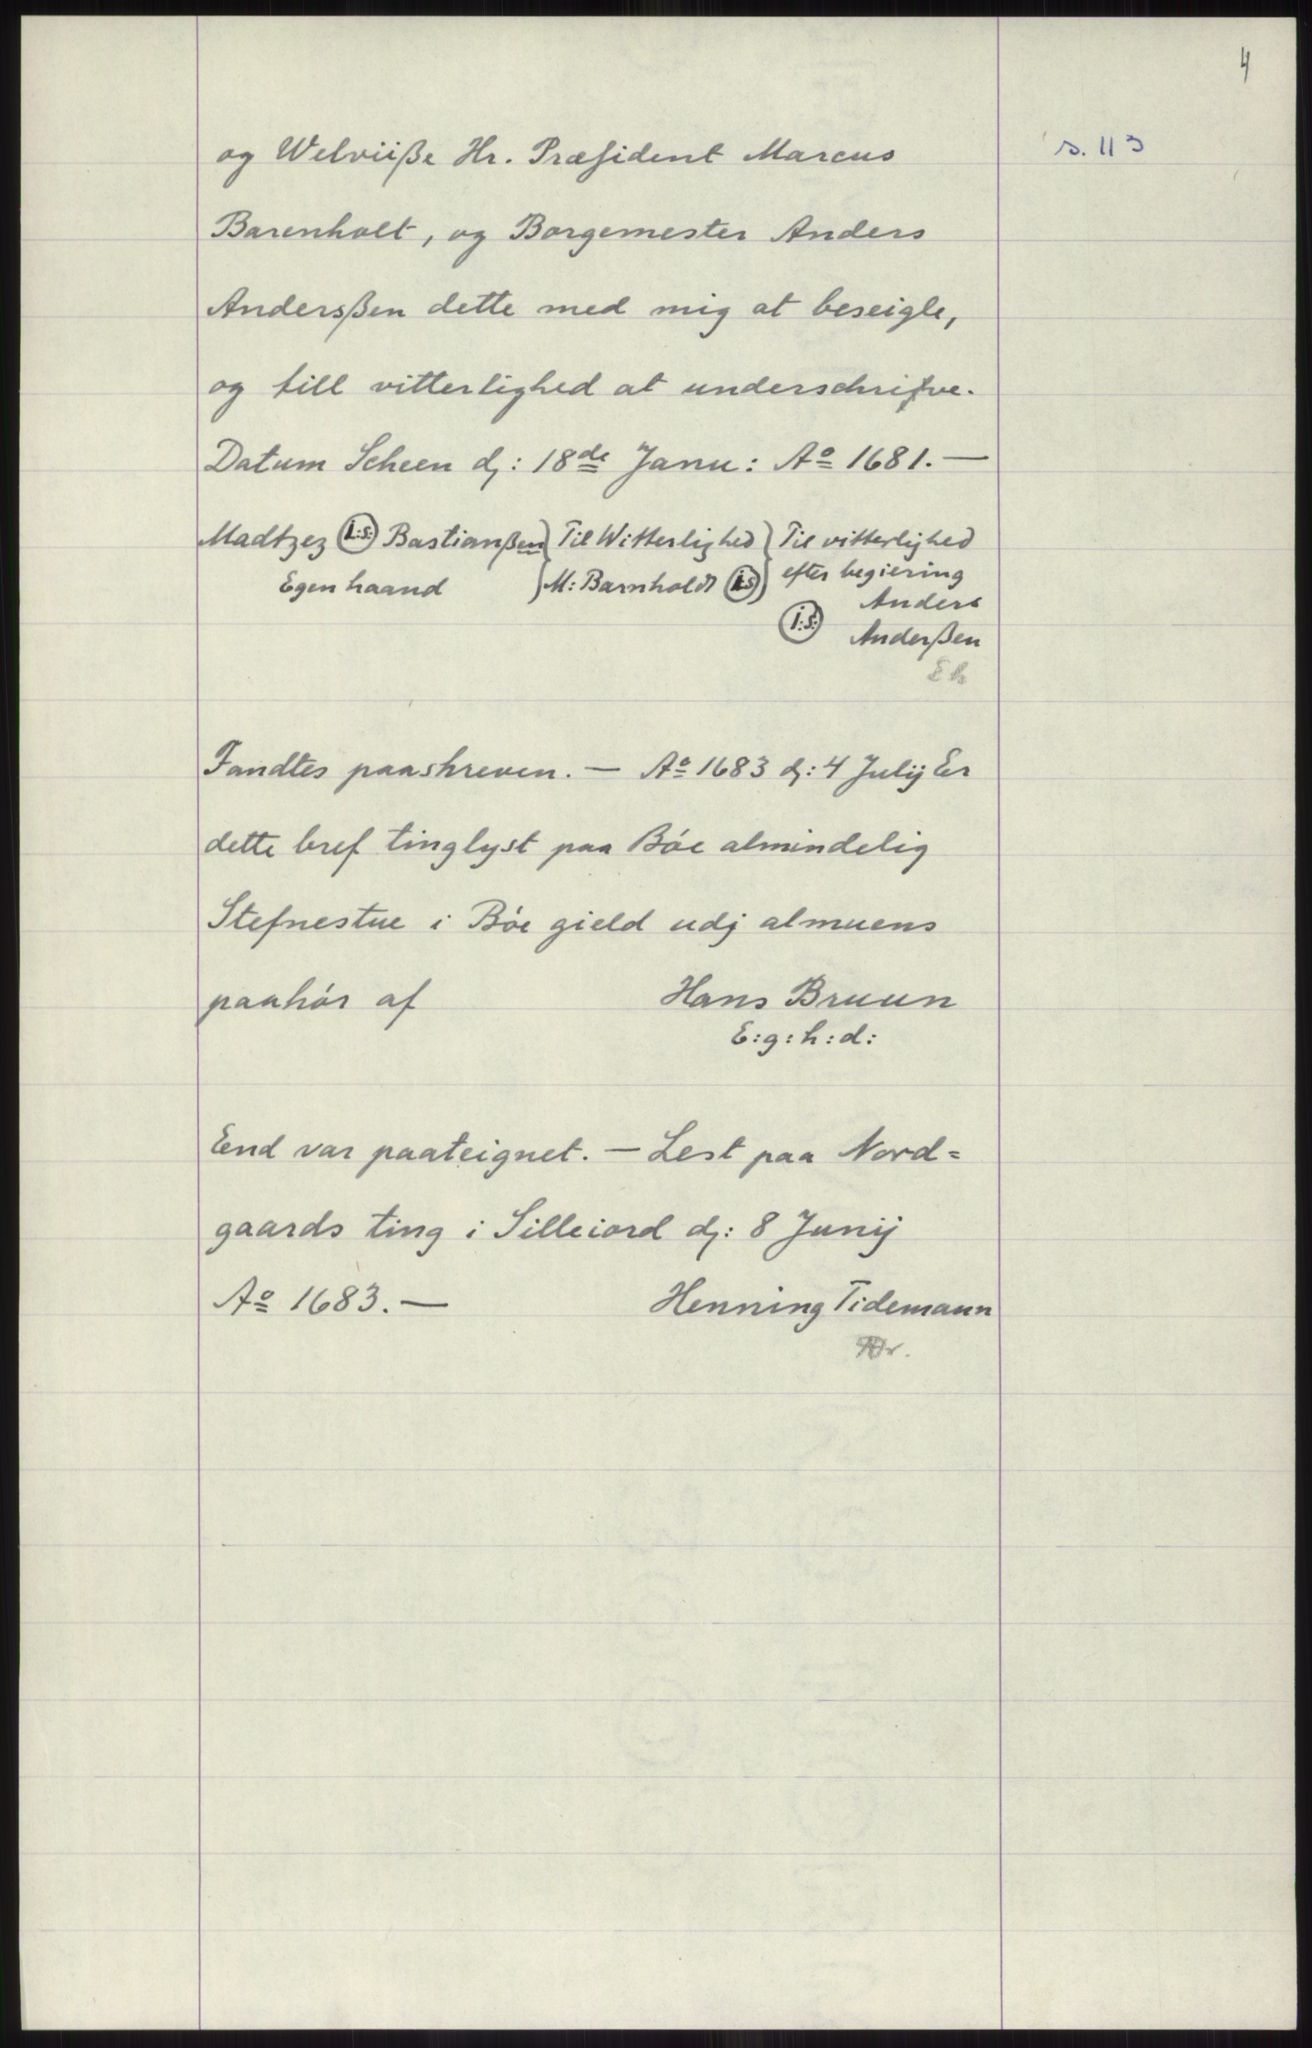 4
s. 113
og Welviiße Hr. Præsident Marcus
Barenholt, og Borgemester Anders
Andersßen dette med mig at beseigle,
og till vitterlighed at underschrifve.
Datum Scheen dj: 18de Janu: Ao 1681. —
Madtzez (L:S:) Bastianßen } Til Witterlighed } Til vitterlighed
Egen haand } M: Barnholdt (L:S) } efter begiering
Anders
(L:S:) Anderßen
Eh
Fandtes paaskreven. — Ao 1683 dj: 4 Julij Er
dette bref tinglyst paa Bóe almindelig
Stefnestue i Bóe gield udj almuens
paahór af Hans Bruun
E:g:h:d:
End var paateignet. — Lest paa Nord=
gaards ting i Silleiord dj: 8 Junij
Ao 1683. — Henning Tidemann